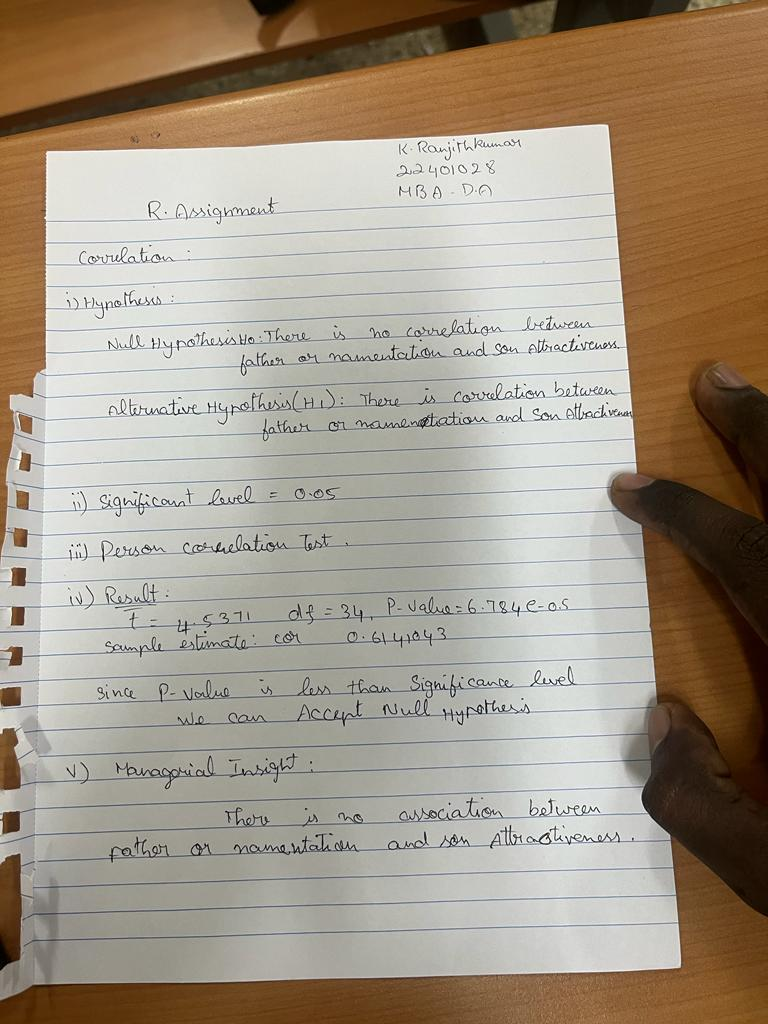 K. Ranjithkumar
22401028
MBA - DA
R. Assignment
Correlation :
i) Hypothesis :
Null Hypothesis Ho: There is no correlation between
father or namentation and son Attractiveness.
Alternative Hypothesis (H1): There is correlation between
father or namentation and son Attractiveness
ii) Significant level = 0.05
iii) Person correlation Test .
iv) Result :
t = 4.5371 df = 34, P-value = 6.784e-0.5
Sample estimate: cor 0.6141043
since P-value is less than Significance level
we can Accept Null Hypothesis
v) Managorial Insight :
There is no association between
father or namentation and son Attractiveness .